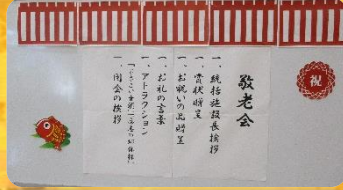 祝
敬老会
一、統括施設長挨拶
一、賞状贈呈
一、お祝いの品贈呈
一、お礼の言葉
一、アトラクション
一、閉会の挨拶